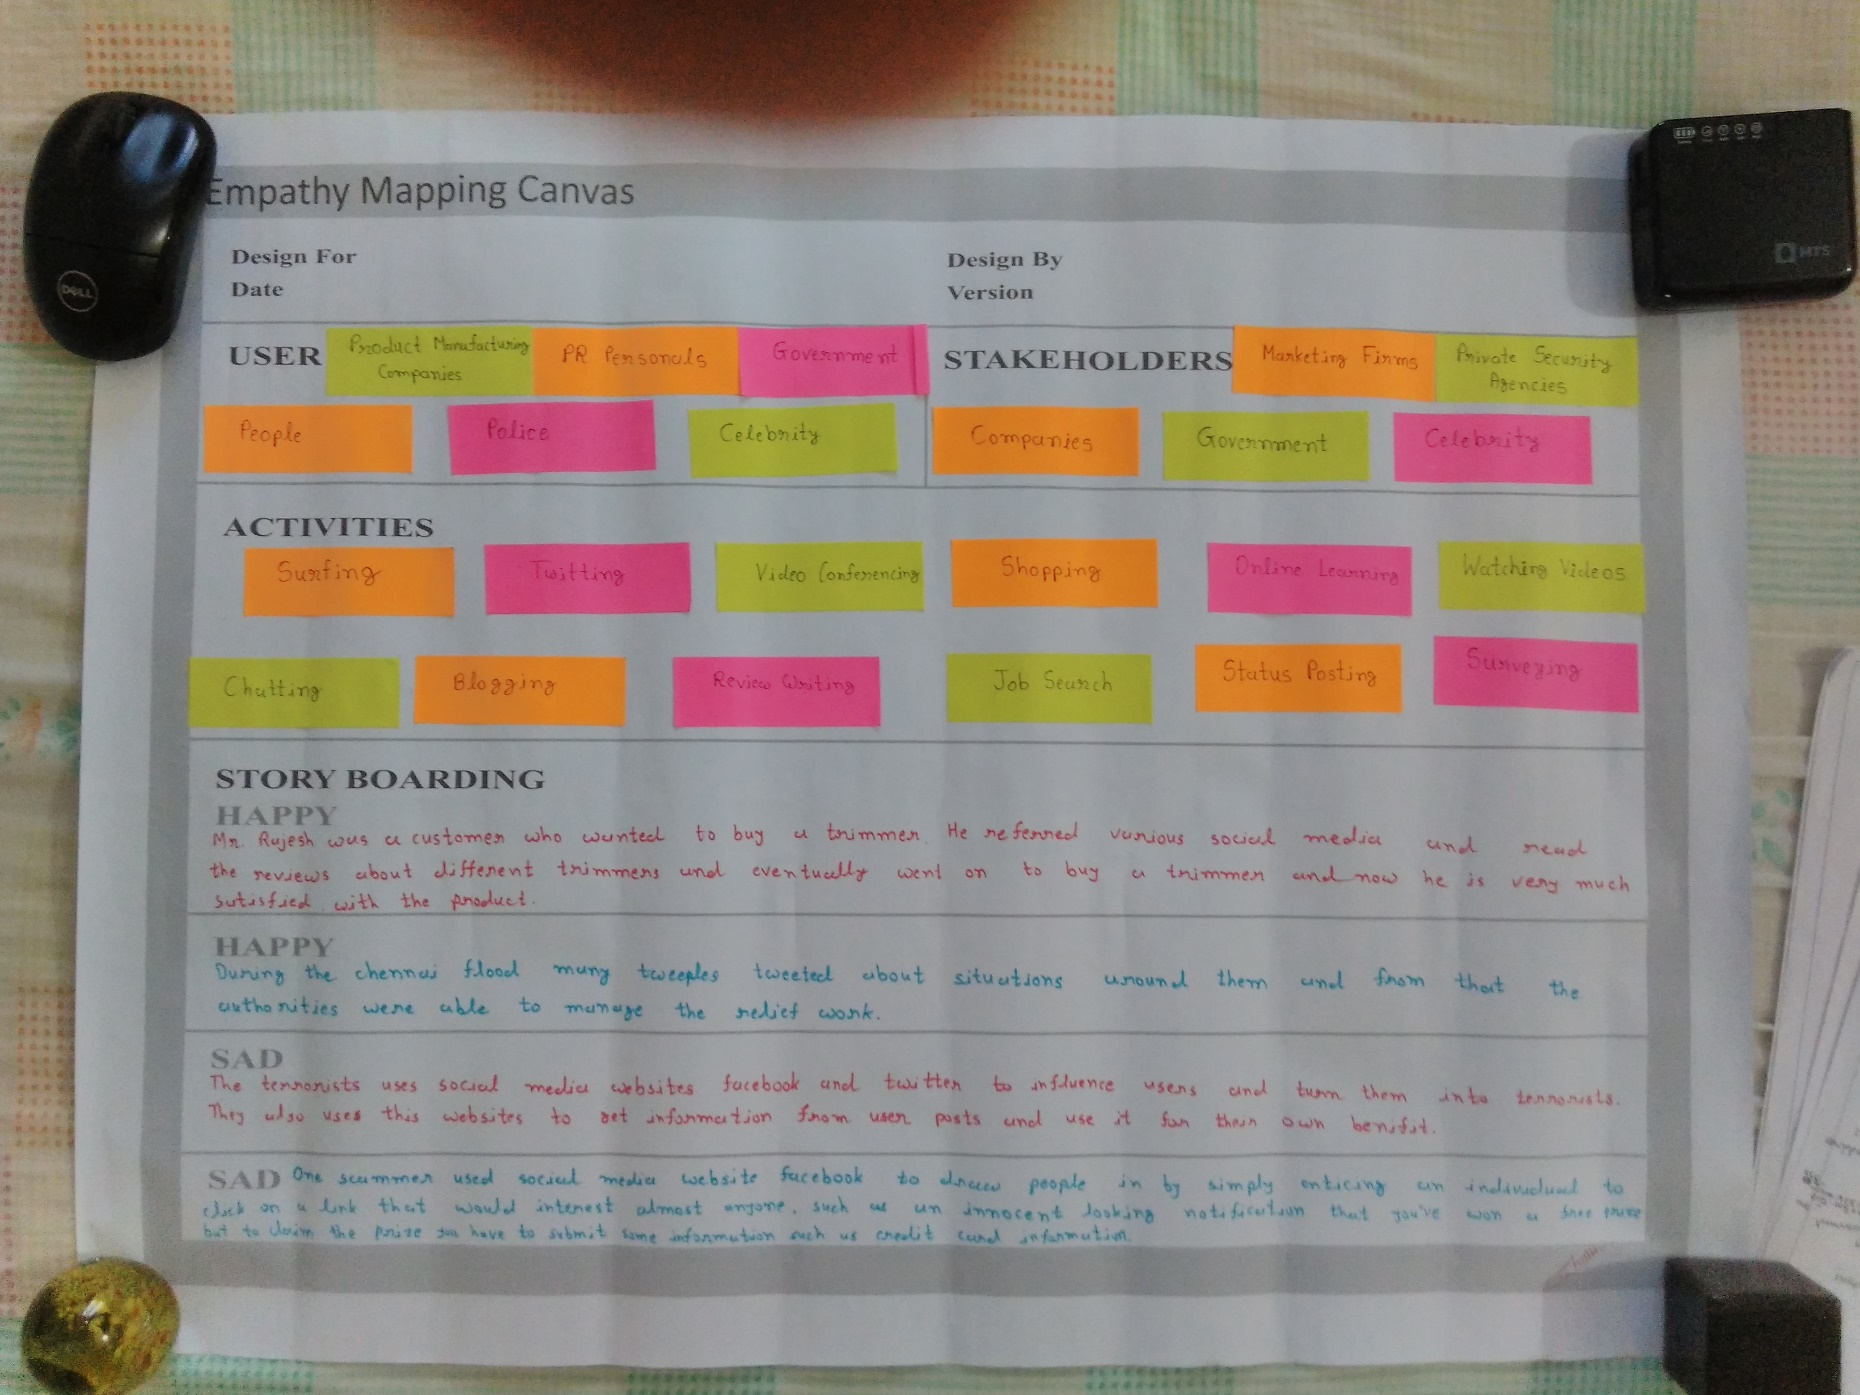 Empathy Mapping Canvas
Design For
Date
Design By
Version
USER
Product Manufacturing
Companies
PR Personals
Government
People
Police
Celebrity
STAKEHOLDERS
Marketing Firms
Private Security
Agencies
Companies
Government
Celebrity
ACTIVITIES
Surfing
Twitting
Video Conferencing
Shopping
Online Learning
Watching Videos
Chatting
Blogging
Review Writing
Job Search
Status Posting
Surveying
STORY BOARDING
HAPPY
Mr. Rajesh was a customer who wanted to buy a trimmer. He referred various social media and read
the reviews about different trimmers and eventually went on to buy a trimmer and now he is very much
satisfied with the product.
HAPPY
During the chennai flood many tweeples tweeted about situations around them and from that the
authorities were able to manage the relief work.
SAD
The terrorists uses social media websites facebook and twitter to influence users and turn them into terrorists.
They also uses this websites to get information from user posts and use it for their own benifit.
SAD One scammer used social media website facebook to draw people in by simply enticing an individual to
click on a link that would interest almost anyone, such as an innocent looking notification that you've won a free prize
but to claim the prize you have to submit some information such us credit card information
DELL
MTS